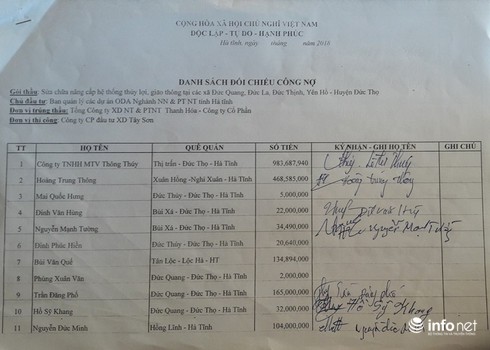 CỘNG HÒA XÃ HỘI CHỦ NGHĨA VIỆT NAM
ĐỘC LẬP - TỰ DO - HẠNH PHÚC
Hà tĩnh, ngày tháng năm 2018
DANH SÁCH ĐỐI CHIẾU CÔNG NỢ
Gói thầu: Sửa chữa nâng cấp hệ thống thủy lợi, giao thông tại các xã Đức Quang, Đức La, Đức Thịnh, Yên Hồ - Huyện Đức Thọ
Chủ đầu tư: Ban quản lý các dự án ODA Nghành NN & PT NT tỉnh Hà tĩnh
Đơn vị trúng thầu: Tổng Công ty XD NT & PTNT Thanh Hóa - Công ty Cổ Phần
Đơn vị thi công: Công ty CP đầu tư XD Tây Sơn
TT HỌ TÊN QUÊ QUÁN SỐ TIỀN KÝ NHẬN - GHI HỌ TÊN GHI CHÚ
1 Công ty TNHH MTV Thông Thúy Thị trấn - Đức Thọ - Hà Tĩnh 983,687,940
2 Hoàng Trung Thông Xuân Hồng -Nghi Xuân - Hà Tĩnh 468,585,000 Hoàng Trung Thông
3 Mai Quốc Hưng Đức Thủy - Đức Thọ - Hà Tĩnh 5,000,000
4 Đinh Văn Hùng Bùi Xá - Đức Thọ - Hà Tĩnh 22,000,000
5 Nguyễn Mạnh Tường Bùi Xá - Đức Thọ - Hà Tĩnh 34,490,000 Nguyễn Mạnh Tường
6 Đinh Phúc Hiền Đức Thủy - Đức Thọ - Hà Tĩnh 20,640,000
7 Bùi Văn Quế Tân Lộc - Lộc Hà - HT 134,894,000
8 Phùng Xuân Vân Đức Quang - Đức Thọ - Hà Tĩnh 2,000,000
9 Trần Đăng Phố Đức Quang - Đức Thọ - Hà Tĩnh 165,000,000
10 Hồ Sỹ Khang Đức Quang - Đức Thọ - Hà Tĩnh 32,000,000 Hồ Sỹ Khang
11 Nguyễn Đức Minh Hồng Lĩnh - Hà Tĩnh 104,000,000 Nguyễn Đức
infonet